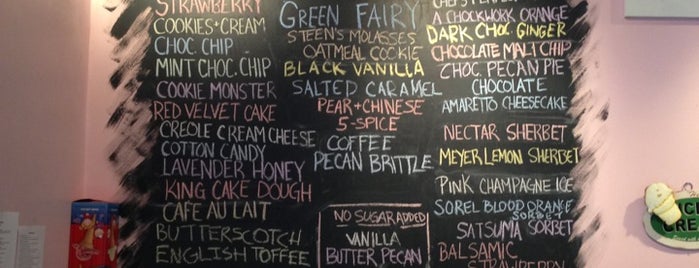 STRAWBERRY
COOKIES+CREAM
CHOC. CHIP
MINT CHOC. CHIP
COOKIE MONSTER
RED VELVET CAKE
CREOLE CREAM CHEESE
COTTON CANDY
LAVENDER HONEY
KING CAKE DOUGH
CAFE AU LAIT
BUTTERSCOTCH
ENGLISH TOFFEE
GREEN FAIRY
STEEN'S MOLASSES
OATMEAL COOKIE
BLACK VANILLA
SALTED CARAMEL
PEAR+CHINESE
5-SPICE
COFFEE
PECAN BRITTLE
NO SUGAR ADDED
VANILLA
BUTTER PECAN
A CHOCKWORK ORANGE
DARK CHOC. GINGER
CHOCOLATE MALT CHIP
CHOC. PECAN PIE
CHOCOLATE
AMARETTO CHEESECAKE
NECTAR SHERBET
MEYER LEMON SHERBET
PINK CHAMPAGNE ICE
SOREL BLOOD ORANGE
SORBET
SATSUMA SORBET
BALSAMIC
STRAWBERRY